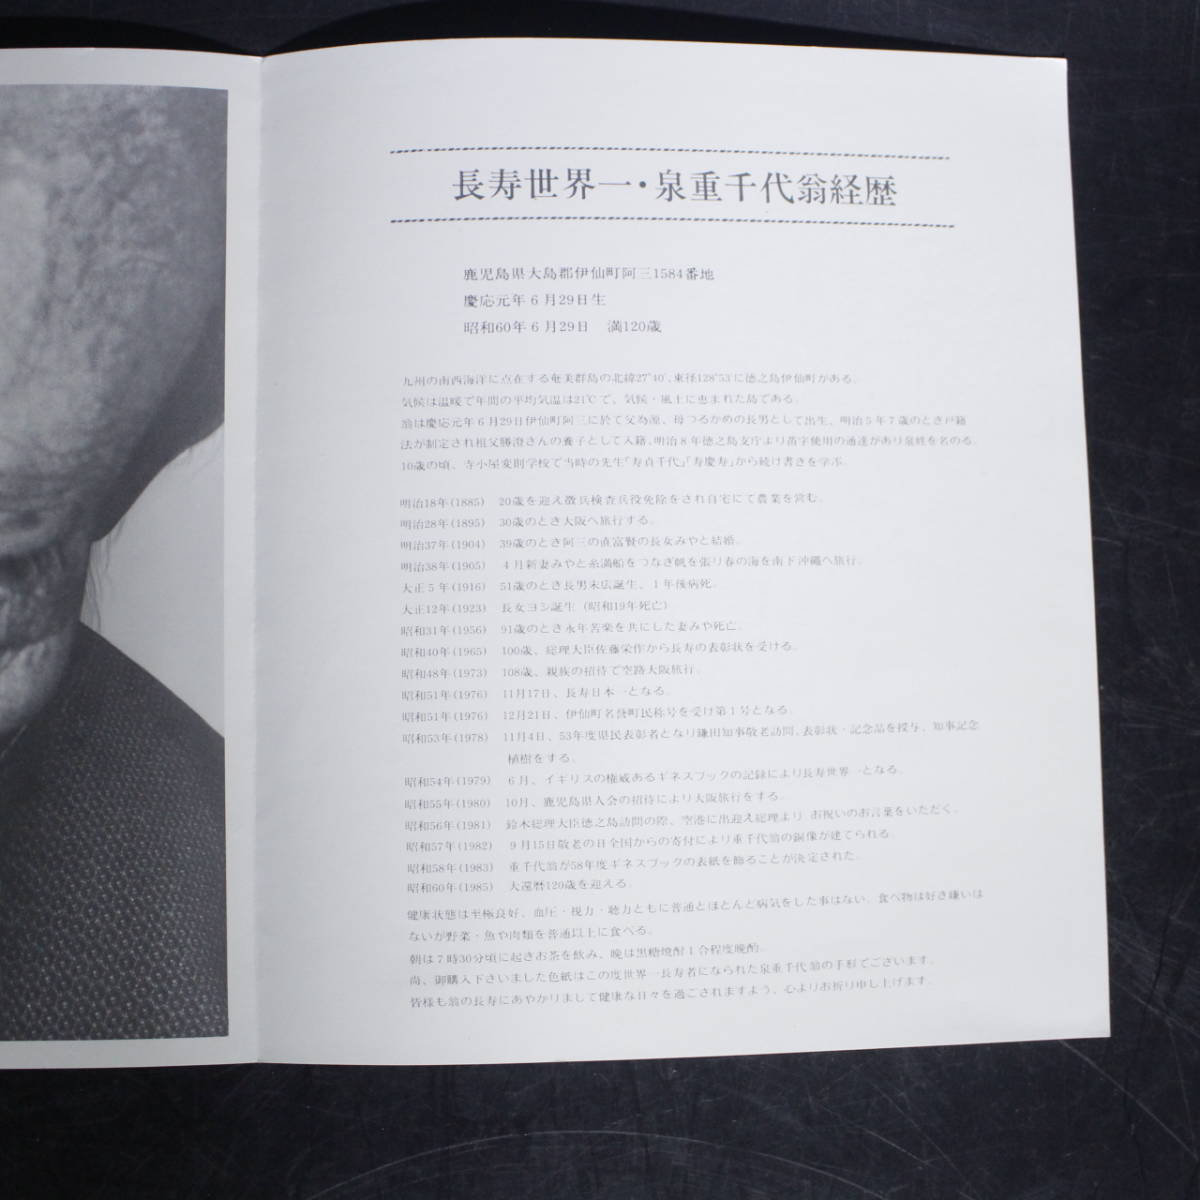 長寿世界一・泉重千代翁経歴
鹿児島県大島郡伊仙町阿三1584番地
慶応元年6月29日生
昭和60年6月29日　満120歳
九州の南西海洋に点在する奄美群島の北緯27°40′、東径128°53′に徳之島伊仙町がある。
気候は温暖で年間の平均気温は21℃で、気候・風土に恵まれた島である。
翁は慶応元年6月29日伊仙町阿三に於て父為源、母つるかめの長男として出生、明治5年7歳のとき戸籍
法が制定され祖父勝澄さんの養子として入籍、明治8年徳之島支庁より苗字使用の通達があり泉姓を名のる。
10歳の頃、寺小屋変則学校で当時の先生「寿貞千代」「寿慶寿」から続け書きを学ぶ。
明治18年(1885)　20歳を迎え徴兵検査兵役免除をされ自宅にて農業を営む。
明治28年(1895)　30歳のとき大阪へ旅行する。
明治37年(1904)　39歳のとき阿三の直富賢の長女みやと結婚。
明治38年(1905)　4月新妻みやと糸満船をつなぎ帆を張り春の海を南下沖縄へ旅行。
大正5年(1916)　51歳のとき長男末広誕生、1年後病死。
大正12年(1923)　長女ヨシ誕生（昭和19年死亡）
昭和31年(1956)　91歳のとき永年苦楽を共にした妻みや死亡。
昭和40年(1965)　100歳、総理大臣佐藤栄作から長寿の表彰状を受ける。
昭和48年(1973)　108歳、親族の招待で空路大阪旅行。
昭和51年(1976)　11月17日、長寿日本一となる。
昭和51年(1976)　12月21日、伊仙町名誉町民称号を受け第1号となる。
昭和53年(1978)　11月4日、53年度県民表彰者となり鎌田知事敬老訪問、表彰状・記念品を授与、知事記念
植樹をする。
昭和54年(1979)　6月、イギリスの権威あるギネスブックの記録により長寿世界一となる。
昭和55年(1980)　10月、鹿児島県人会の招待により大阪旅行をする。
昭和56年(1981)　鈴木総理大臣徳之島訪問の際、空港に出迎え総理より お祝いのお言葉をいただく。
昭和57年(1982)　9月15日敬老の日全国からの寄付により重千代翁の銅像が建てられる。
昭和58年(1983)　重千代翁が58年度ギネスブックの表紙を飾ることが決定された。
昭和60年(1985)　大還暦120歳を迎える。
健康状態は至極良好、血圧・視力・聴力ともに普通とほとんど病気をした事はない、食べ物は好き嫌いは
ないが野菜・魚や肉類を普通以上に食べる。
朝は7時30分頃に起きお茶を飲み、晩は黒糖焼酎1合程度晩酌。
尚、御購入下さいました色紙はこの度世界一長寿者になられた泉重千代翁の手形でございます。
皆様も翁の長寿にあやかりまして健康な日々を過ごされますよう、心よりお祈り申し上げます。